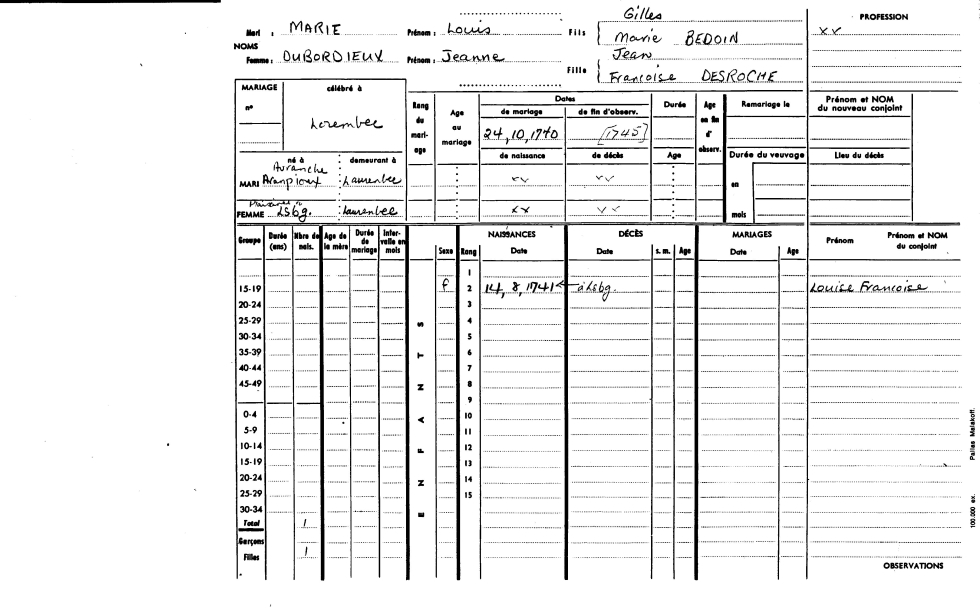 Gilles
Mari : MARIE Prénom : Louis Fils Marie BEDOIN
NOMS
Femme : DUBORDIEUX Prénom : Jeanne Fille Jean
Francoise DESROCHE
PROFESSION
XX
MARIAGE célébré à
n°
Lorembec
Rang du mari- age
Age au mariage
Dates
de mariage de fin d'observ.
24, 10, 1740 [1745]
de naissance de décès
Durée
Age
Age en fin d' observ.
Remariage le
Durée du veuvage
en
mois
Prénom et NOM du nouveau conjoint
Lieu du décès
né à demeurant à
Avranche
MARI Laurenbec xx xx
FEMME Lsbg. Laurenbec xx xx
Groupe Durée (ans) Nbre de nais. Age de la mère Durée de mariage Inter- valle en mois
ENFANTS
Sexe Rang
NAISSANCES Date
DÉCÈS Date s. m. Age
MARIAGES Date Age
Prénom Prénom et NOM du conjoint
1
15-19 f 2 14, 8, 1741 ← à Lsbg. Louise Francoise
20-24 3
25-29 4
30-34 5
35-39 6
40-44 7
45-49 8
9
0-4 10
5-9 11
10-14 12
15-19 13
20-24 14
25-29 15
30-34
Total 1
Garçons
Filles 1
OBSERVATIONS
100.000 ex. Pallas Malakoff.